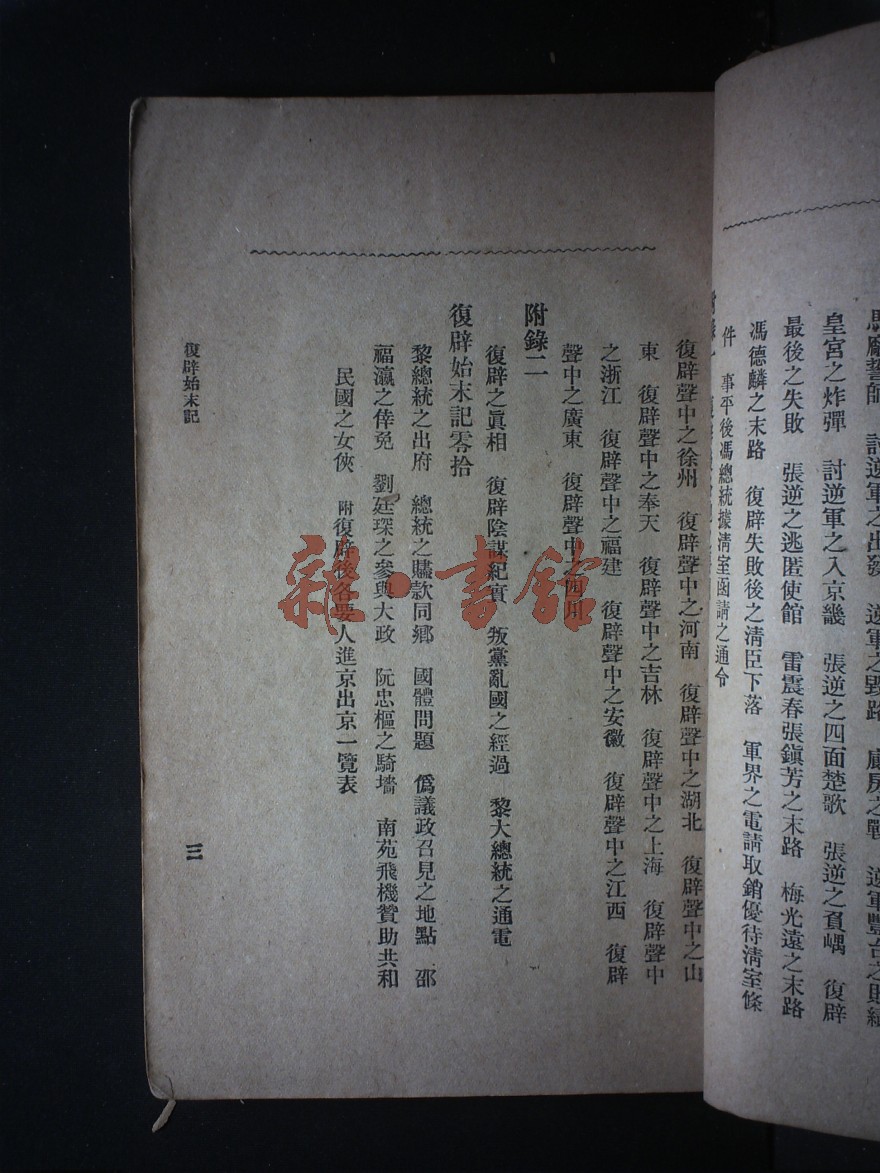 皇宮之炸彈 討逆軍之入京畿 張逆之四面楚歌 張逆之負嵎 復辟
最後之失敗 張逆之逃匿使館 雷震春張鎭芳之末路 梅光遠之末路
馮德麟之末路 復辟失敗後之淸臣下落 軍界之電請取銷優待淸室條
件 事平後馮總統據淸室函請之通令
復辟聲中之徐州 復辟聲中之河南 復辟聲中之湖北 復辟聲中之山
東 復辟聲中之奉天 復辟聲中之吉林 復辟聲中之上海 復辟聲中
之浙江 復辟聲中之福建 復辟聲中之安徽 復辟聲中之江西 復辟
聲中之廣東 復辟聲中之四川
附錄二
復辟之眞相 復辟陰謀紀實 叛黨亂國之經過 黎大總統之通電
復辟始末記零拾
黎總統之出府 總統之贐款同鄕 國體問題 僞議政召見之地點 邵
福瀛之倖免 劉廷琛之參與大政 阮忠樞之騎墻 南苑飛機贊助共和
民國之女俠 附復辟後各要人進京出京一覽表
復辟始末記
三
雜·書館